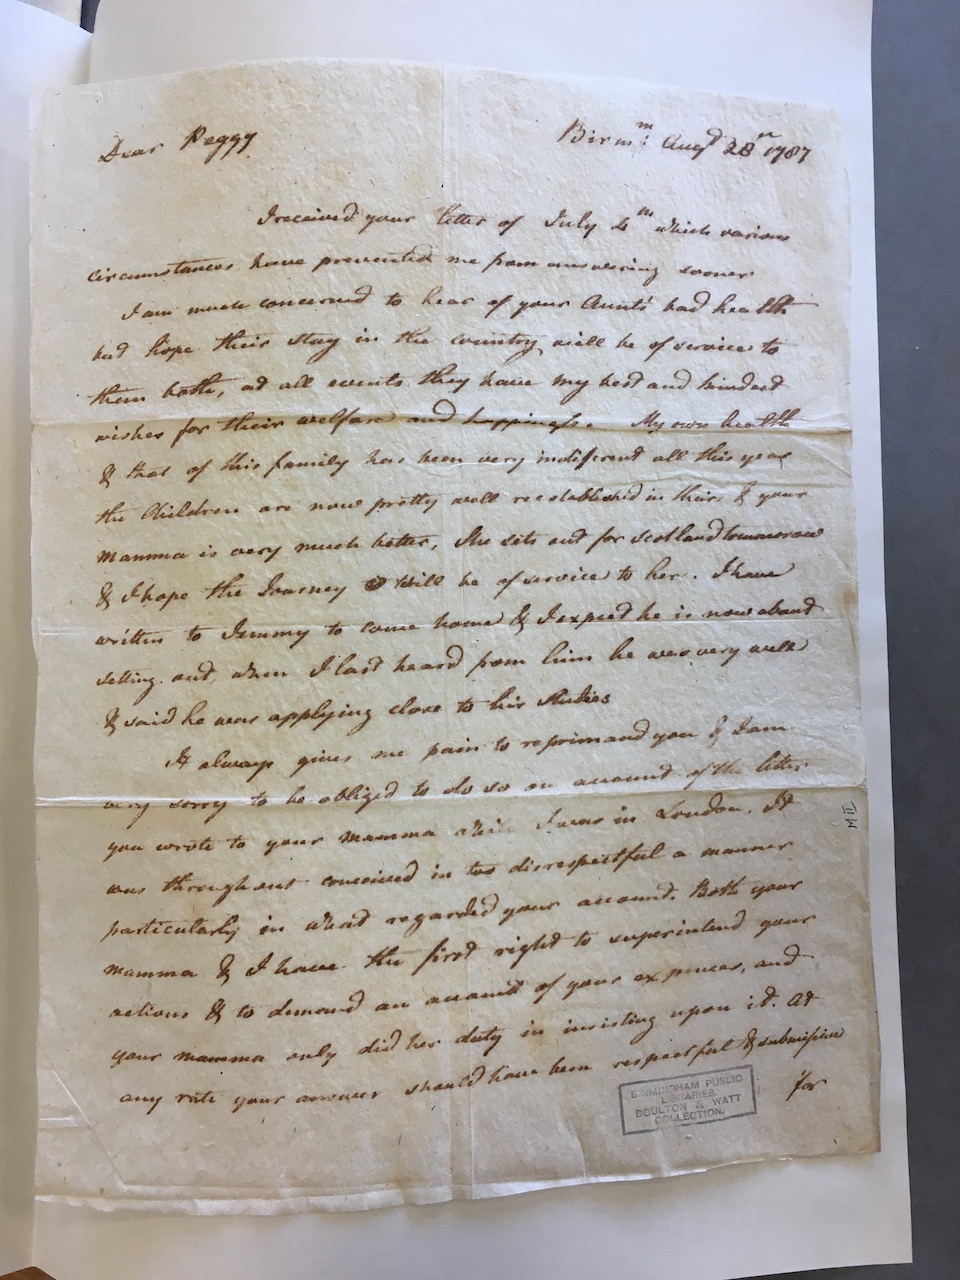 Dear Peggy
Birmm: Augt 28th 1787
I received your letter of July 4th which various
circumstances have prevented me from answering sooner
I am much concerned to hear of your Aunts' bad health
but hope their stay in the country will be of service to
them both, at all events they have my best and kindest
wishes for their welfare and happiness. My own health
& that of this family has been very indiferent all this year
the Children are now pretty well reestablished in theirs & your
mamma is very much better, She sets out for Scotland tomorrow
& I hope the Journey will be of service to her. I have
written to Jammy to come home & I expect he is now about
setting out, when I last heard from him he was very well
& said he was applying close to his studies
It always gives me pain to reprimand you & I am
very sorry to be obliged to do so on account of the letter
you wrote to your mamma while I was in London. It
was throughout conceived in too disrespectful a manner
particularly in what regarded your account. Both your
mamma & I have the first right to superintend your
actions & to demand an account of your expences, and
your mamma only did her duty in insisting upon it. At
any rate your answer should have been respectful & submissive
for
M II
BIRMINGHAM PUBLIC
LIBRARIES.
BOULTON & WATT
COLLECTION.